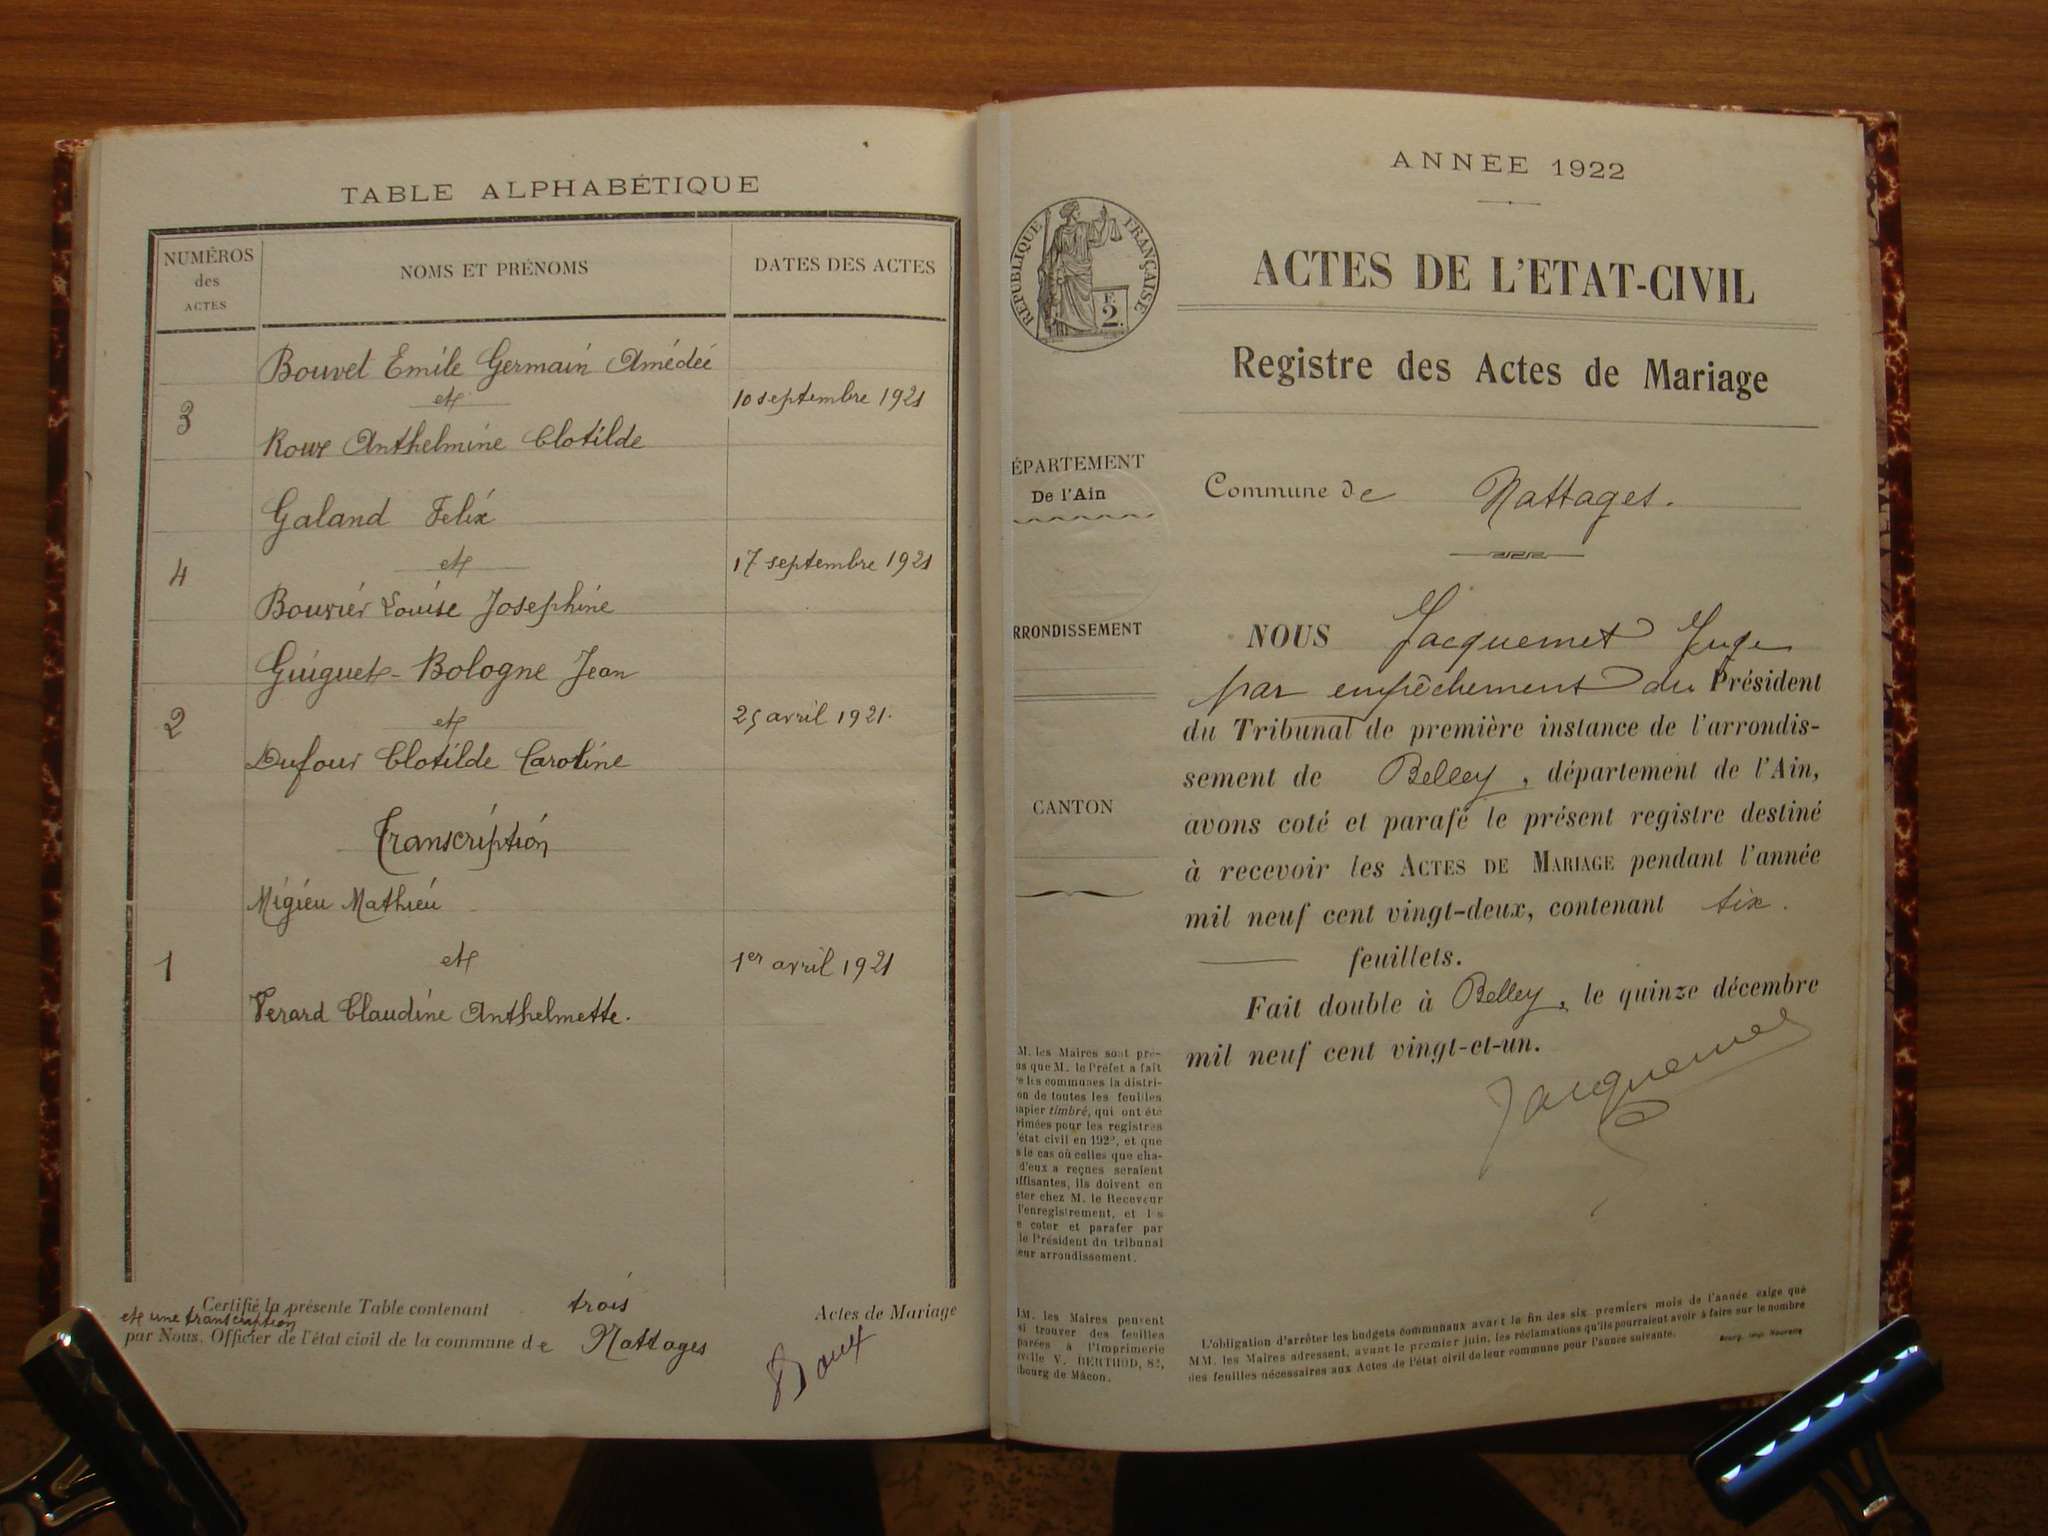 TABLE ALPHABÉTIQUE
NUMÉROS
des
ACTES
NOMS ET PRÉNOMS
DATES DES ACTES
Bouvet Emile Germain Amédée
3
et
10 septembre 1921
Roux Anthelmine Clotilde
Galand Felix
4
et
17 septembre 1921
Bouvier Louise Josephine
Guiguet-Bologne Jean
2
et
25 avril 1921.
Dufour Clotilde Caroline
Transcription
Migieu Mathieu
1
et
1er avril 1921
Verard Claudine Anthelmette.
Certifié la présente Table contenant trois Actes de Mariage
et une transcription
par Nous, Officier de l'état civil de la commune de Nattages
ANNÉE 1922
RÉPUBLIQUE FRANÇAISE
F.
2.
ACTES DE L'ETAT-CIVIL
Registre des Actes de Mariage
ÉPARTEMENT
De l'Ain
RRONDISSEMENT
CANTON
Commune de Nattages.
NOUS Jacquemet Juge
par empêchement du Président
du Tribunal de première instance de l'arrondis-
sement de Belley, département de l'Ain,
avons coté et parafé le présent registre destiné
à recevoir les ACTES DE MARIAGE pendant l'année
mil neuf cent vingt-deux, contenant six.
feuillets.
Fait double à Belley, le quinze décembre
mil neuf cent vingt-et-un.
Jacquemet
M. les Maires sont pré-
us que M. le Préfet a fait
re les communes la distri-
on de toutes les feuilles
apier timbré, qui ont été
rimées pour les registres
'état civil en 1922, et que
s le cas où celles que cha-
d'eux a reçues seraient
uffisantes, ils doivent en
ster chez M. le Receveur
l'enregistrement, et l s
e coter et parafer par
le Président du tribunal
eur arrondissement.
MM. les Maires peuvent
si trouver des feuilles
parées à l'Imprimerie
velle V. BERTHOD, 82,
bourg de Mâcon.
L'obligation d'arrêter les budgets communaux avant la fin des six premiers mois de l'année exige que
MM. les Maires adressent, avant le premier juin, les réclamations qu'ils pourraient avoir à faire sur le nombre
des feuilles nécessaires aux Actes de l'état civil de leur commune pour l'année suivante.